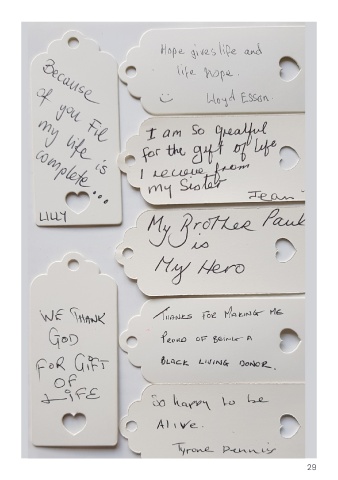 Because
of you Fil
my life is
complete...
LILLY
Hope gives life and
life hope.
Lloyd Esson.
I am so greatful
for the gift of life
I recieve from
my Sister
Jean
My Brother Paul
is
My Hero
WE THANK
GOD
FOR GIFT
OF
LIFE
THANKS FOR MAKING ME
PROUD OF BEING A
BLACK LIVING DONOR.
So happy to be
Alive.
Tyrone Dennis
29